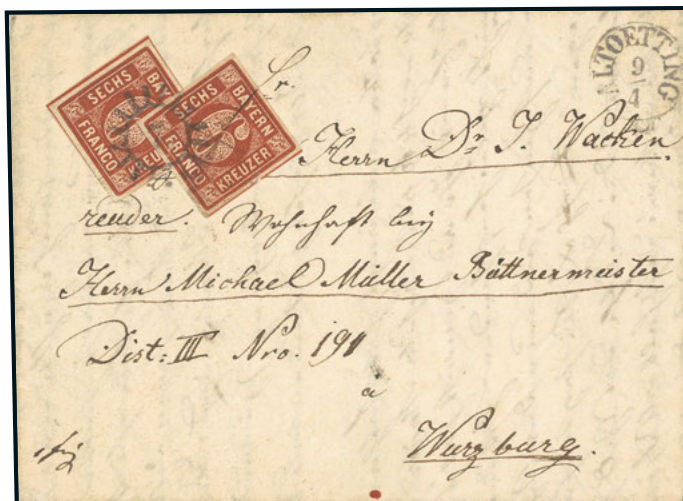 SECHS
BAYERN
KREUZER
FRANCO
6
SECHS
BAYERN
KREUZER
FRANCO
6
ALTOETTING
9
4
Fr.
Herrn Dr. J. Wacken
reuder. Wohnhaft bey
Herrn Michael Müller Büttnermeister
Dist: III Nro. 191
a
Wurzburg.